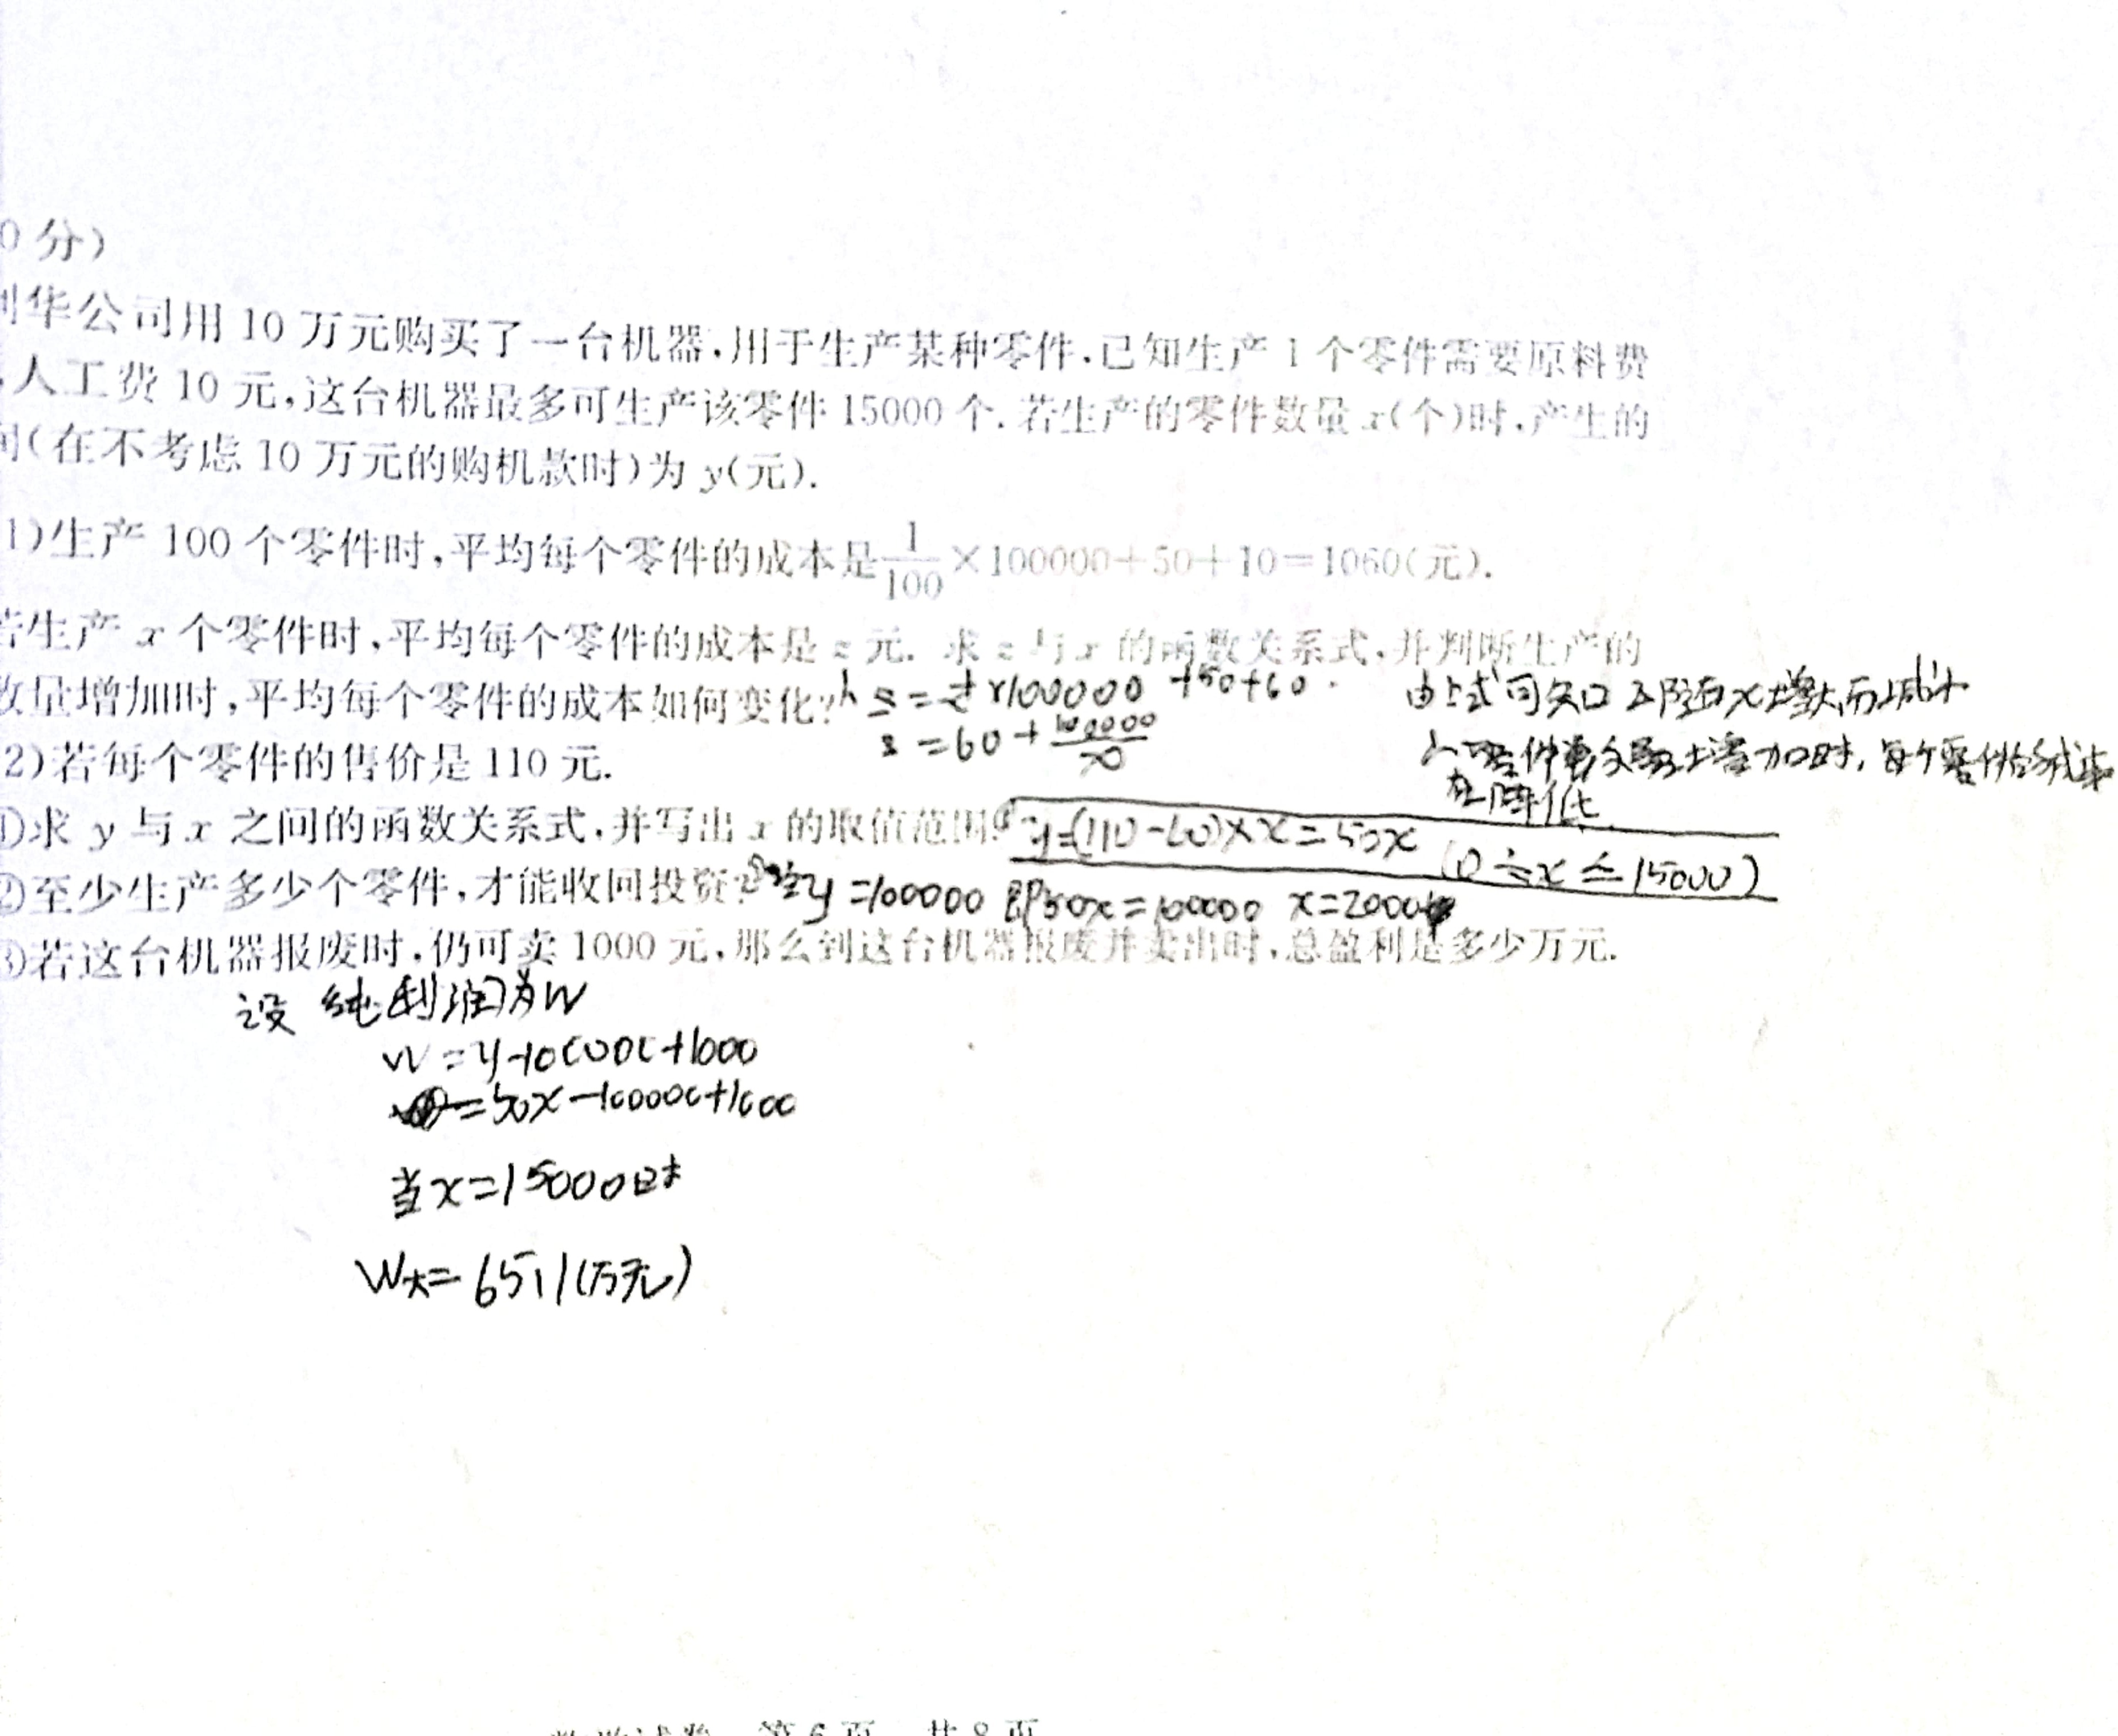 0分)
华公司用10万元购买了一台机器,用于生产某种零件.已知生产1个零件需要原料费
人工费10元,这台机器最多可生产该零件15000个.若生产的零件数量x(个)时,产生的
(在不考虑10万元的购机款时)为y(元).
1)生产100个零件时,平均每个零件的成本是1/100×100000+50+10=1060(元).
生产x个零件时,平均每个零件的成本是z元.求z与x的函数关系式,并判断生产的
量增加时,平均每个零件的成本如何变化?
×100000+50+60.
=60+100000/x
由上式可知z随x增大而减小
零件数量增加时,每个零件的成本
在降低
2)若每个零件的售价是110元.
①求y与x之间的函数关系式,并写出x的取值范围.
y=(110-60)×x=50x (0≤x≤15000)
②至少生产多少个零件,才能收回投资?
当y=100000 即50x=100000 x=2000
③若这台机器报废时,仍可卖1000元,那么到这台机器报废并卖出时,总盈利是多少万元.
设 纯利润为W
W=y-100000+1000
=50x-100000+1000
当x=15000时
W大=65.1(万元)
第6页 共8页